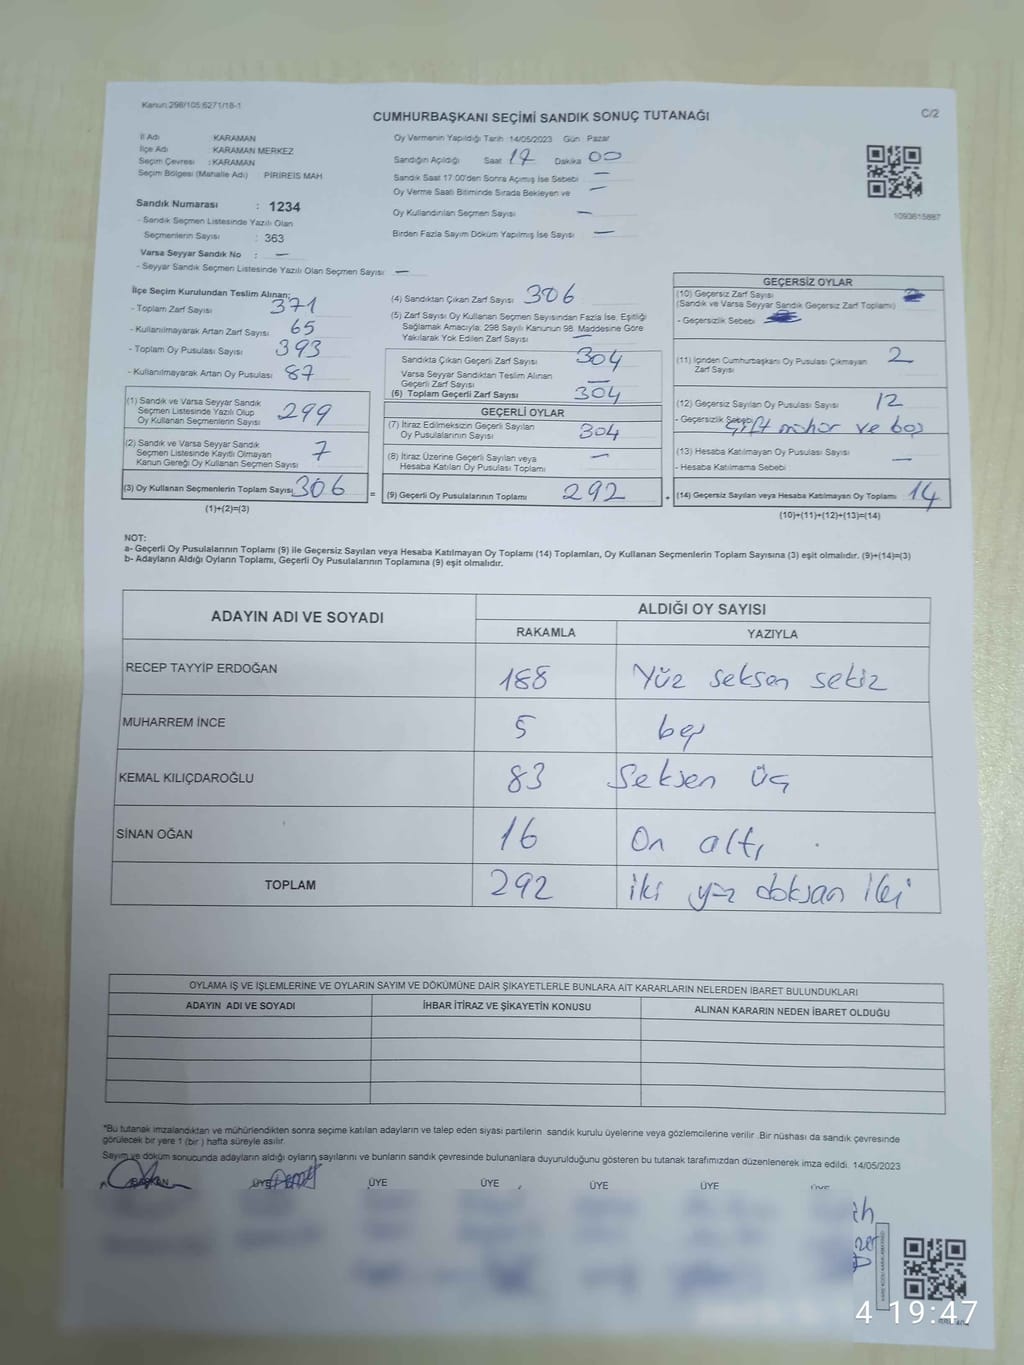 Kanun:298/105;6271/18-1
CUMHURBAŞKANI SEÇİMİ SANDIK SONUÇ TUTANAĞI
C/2
İl Adı KARAMAN
İlçe Adı KARAMAN MERKEZ
Seçim Çevresi :KARAMAN
Seçim Bölgesi (Mahalle Adı) PİRİREİS MAH
Sandık Numarası : 1234
- Sandık Seçmen Listesinde Yazılı Olan
Seçmenlerin Sayısı : 363
Varsa Seyyar Sandık No : —
- Seyyar Sandık Seçmen Listesinde Yazılı Olan Seçmen Sayısı : —
Oy Vermenin Yapıldığı Tarih 14/05/2023 Gün Pazar
Sandığın Açıldığı Saat 17 Dakika 00
Sandık Saat 17:00'den Sonra Açımış İse Sebebi —
Oy Verme Saati Bitiminde Sırada Bekleyen ve —
Oy Kullandırılan Seçmen Sayısı —
Birden Fazla Sayım Döküm Yapılmış İse Sayısı —
1093615887
İlçe Seçim Kurulundan Teslim Alınan;
- Toplam Zarf Sayısı 371
- Kullanılmayarak Artan Zarf Sayısı 65
- Toplam Oy Pusulası Sayısı 393
- Kullanılmayarak Artan Oy Pusulası 87
(1) Sandık ve Varsa Seyyar Sandık
Seçmen Listesinde Yazılı Olup
Oy Kullanan Seçmenlerin Sayısı 299
(2) Sandık ve Varsa Seyyar Sandık
Seçmen Listesinde Kayıtlı Olmayan
Kanun Gereği Oy Kullanan Seçmen Sayısı 7
(3) Oy Kullanan Seçmenlerin Toplam Sayısı 306
(1)+(2)=(3)
(4) Sandıktan Çıkan Zarf Sayısı 306
(5) Zarf Sayısı Oy Kullanan Seçmen Sayısından Fazla İse, Eşitliği
Sağlamak Amacıyla, 298 Sayılı Kanunun 98. Maddesine Göre
Yakılarak Yok Edilen Zarf Sayısı —
Sandıkta Çıkan Geçerli Zarf Sayısı 304
Varsa Seyyar Sandıktan Teslim Alınan
Geçerli Zarf Sayısı —
(6) Toplam Geçerli Zarf Sayısı 304
GEÇERLİ OYLAR
(7) İtiraz Edilmeksizin Geçerli Sayılan
Oy Pusulalarının Sayısı 304
(8) İtiraz Üzerine Geçerli Sayılan veya
Hesaba Katılan Oy Pusulası Toplamı —
= (9) Geçerli Oy Pusulalarının Toplamı 292
GEÇERSİZ OYLAR
(10) Geçersiz Zarf Sayısı
(Sandık ve Varsa Seyyar Sandık Geçersiz Zarf Toplamı)
- Geçersizlik Sebebi
(11) İçinden Cumhurbaşkanı Oy Pusulası Çıkmayan
Zarf Sayısı 2
(12) Geçersiz Sayılan Oy Pusulası Sayısı 12
- Geçersizlik Sebebi Çift mühür ve boş
(13) Hesaba Katılmayan Oy Pusulası Sayısı —
- Hesaba Katılmama Sebebi
+ (14) Geçersiz Sayılan veya Hesaba Katılmayan Oy Toplamı 14
(10)+(11)+(12)+(13)=(14)
NOT:
a- Geçerli Oy Pusulalarının Toplamı (9) ile Geçersiz Sayılan veya Hesaba Katılmayan Oy Toplamı (14) Toplamları, Oy Kullanan Seçmenlerin Toplam Sayısına (3) eşit olmalıdır. (9)+(14)=(3)
b- Adayların Aldığı Oyların Toplamı, Geçerli Oy Pusulalarının Toplamına (9) eşit olmalıdır.
ADAYIN ADI VE SOYADI ALDIĞI OY SAYISI
RAKAMLA YAZIYLA
RECEP TAYYİP ERDOĞAN 188 Yüz seksen sekiz
MUHARREM İNCE 5 beş
KEMAL KILIÇDAROĞLU 83 Seksen üç
SİNAN OĞAN 16 On altı
TOPLAM 292 iki yüz doksan iki
OYLAMA İŞ VE İŞLEMLERİNE VE OYLARIN SAYIM VE DÖKÜMÜNE DAİR ŞİKAYETLERLE BUNLARA AİT KARARLARIN NELERDEN İBARET BULUNDUKLARI
ADAYIN ADI VE SOYADI İHBAR İTİRAZ VE ŞİKAYETİN KONUSU ALINAN KARARIN NEDEN İBARET OLDUĞU
*Bu tutanak imzalandıktan ve mühürlendikten sonra seçime katılan adayların ve talep eden siyasi partilerin sandık kurulu üyelerine veya gözlemcilerine verilir .Bir nüshası da sandık çevresinde
görülecek bir yere 1 (bir ) hafta süreyle asılır.
Sayım ve döküm sonucunda adayların aldığı oyların sayılarını ve bunların sandık çevresinde bulunanlara duyurulduğunu gösteren bu tutanak tarafımızdan düzenlenerek imza edildi. 14/05/2023
BAŞKAN ÜYE ÜYE ÜYE ÜYE ÜYE ÜYE
4 19:47